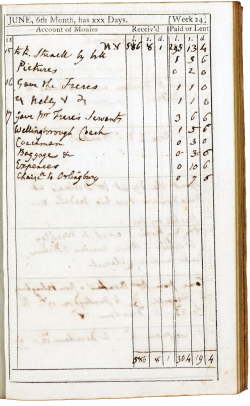 JUNE, 6th Month, has xxx Days. [Week 24.]
Account of Monies Receiv'd Paid or Lent
l. s. d. l. s. d.
586 8 1 13 4
15 by bill 1 5 6
Pictures 0 2 0
16 Gave the Freres 1 1 0
& 1 1 0
17 Gave Mr Frere's Servants 3 6 6
Wellingborough Coach 1 5 6
Coachman 0 3 0
Baggage & 0 3 6
Expences 0 10 6
to Orlingbury 0 7 6
586 8 1 304 19 4